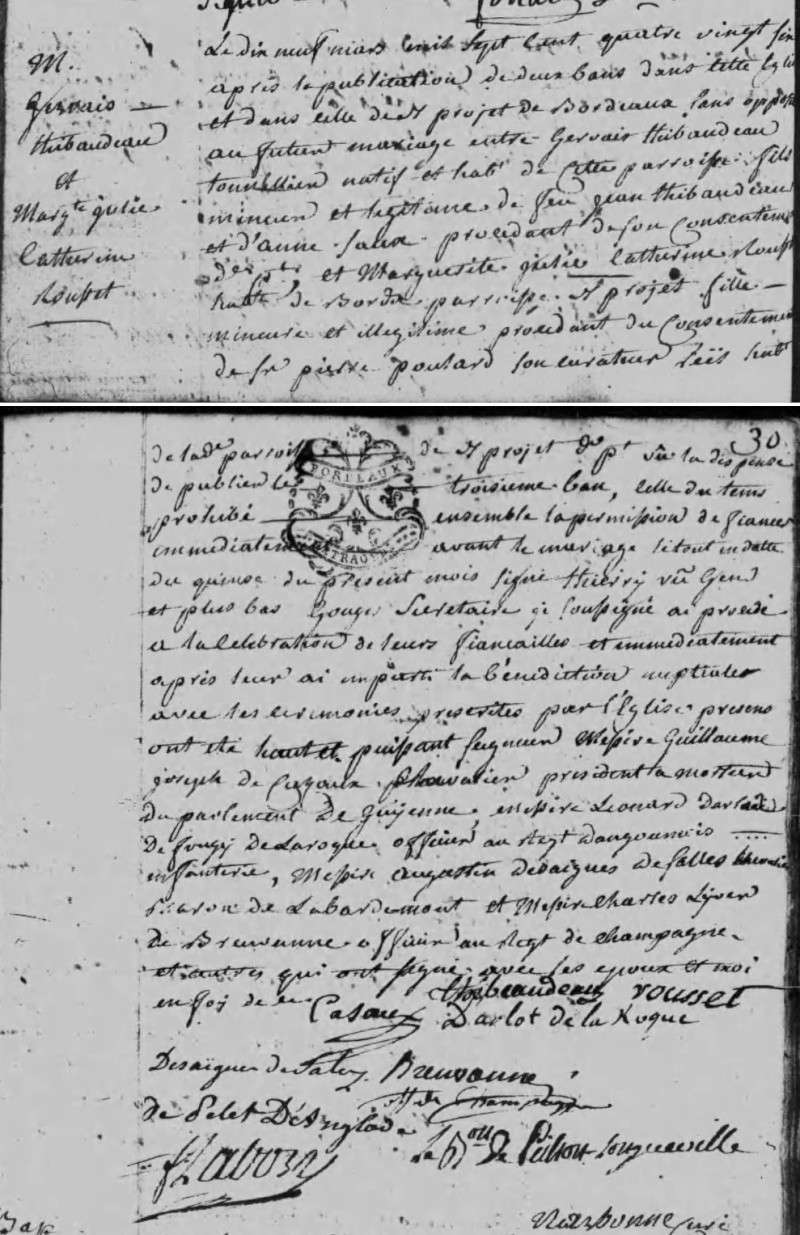 M.
Gervais
thibaudeau
et
Margte julie
Catherine
Rousset
Le dix neuf mars mil sept cent quatre vingt
apres la publication de deux bans dans cette Eglise
et dans celle de St projet de Bordeaux sans oppo
au futeur mariage entre Gervais thibaudeau
tonnellier natif et habt de cette parroisse fils
mineur et legitime de feu jean thibaudeau
et d'anne procedant de son Consenteme
de pte, et Marguerite julie Catherine Rouss
habte de Bordx parroisse St projet fille
mineure et illegitime procedant du Consentemen
de sr pierre poulard son curateur habt
30
de lade parroisse de St projet de pt vû la dispense
de publier le troisieme ban, celle du tems
prohibé ensemble la permission de fiancer
immediatement avant le mariage le tout en datte
du quinse du present mois signé thierry vic Gen
et plus bas Gouges Secretaire je soussigné ai procedé
a la Celebration de leurs fiancailles et immediatement
après leur ai imparti la bénédiction nuptiales
avec les ceremonies prescrites par l'Eglise presens
ont été haut et puissant seigneur Messire Guillaume
joseph de Cazaux chevalier president a mortier
du parlement De Guÿenne, messire Leonard
De Laroque officier au Regt dangoumois ....
infanterie, Messire augustin desaigues de salles
Baron de Labardemont et Messire Charles
De Breuvanne officier au Regt de champagne
et autres qui ont signé avec les epoux et moi
en foj de ce Thibeaudeau rousset
Casaux Darlot de la Roque
Desaigues de Salles Breuvanne
off de Champagne
de Pelet D'Anglade
Le Bon de longueville
Labory
Narbonne curé